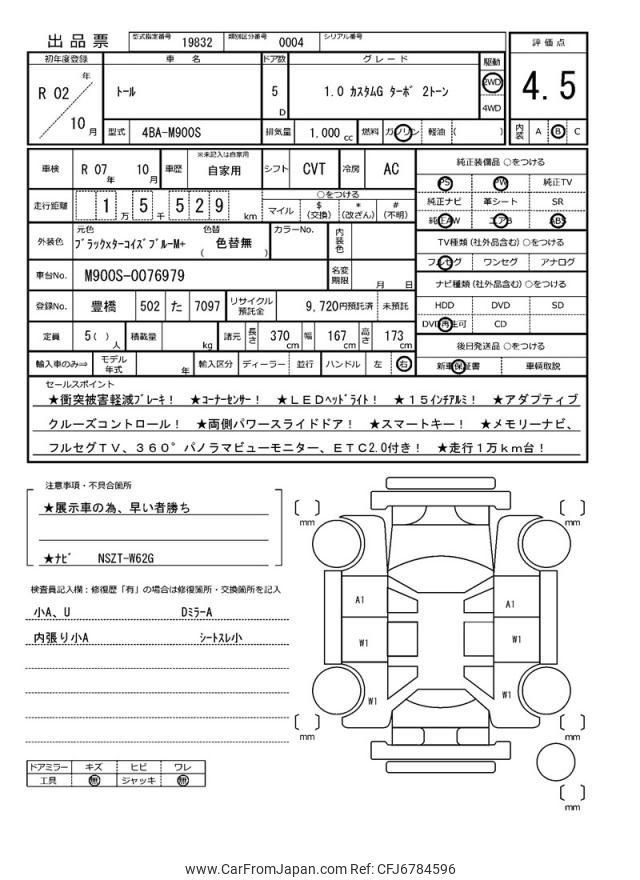 出品票 型式指定番号 19832 類別区分番号 0004 シリアル番号
初年度登録 車名 ドア数 グレード 駆動 評価点
R 02 年 トール 5 D 1.0 カスタムG ターボ 2トーン 2WD 4WD 4.5
10 月 型式 4BA-M900S 排気量 1.000 cc 燃料 ガソリン 軽油 ( ) 内装 A B C
車検 R 07 年 10 月 車歴 ※未記入は自家用 自家用 シフト CVT 冷房 AC
純正装備品 ○をつける
PS PW 純正TV
走行距離 1 万 5 千 5 2 9 km ○をつける
マイル $ (交換) * (改ざん) # (不明)
純正ナビ 革シート SR
純正AW エアB ABS
外装色 元色 ブラック×ターコイズブルーM+ 色替 色替無 ( ) カラーNo. 内装色
TV種類 (社外品含む) ○をつける
フルセグ ワンセグ アナログ
車台No. M900S-0076979 名変期限 月 日
ナビ種類 (社外品含む) ○をつける
登録No. 豊橋 502 た 7097 リサイクル預託金 9,720円預託済 未預託
HDD DVD SD
DVD再生可 CD
定員 5 ( ) 人 積載量 kg 諸元 長さ 370 cm 幅 167 cm 高さ 173 cm
後日発送品 ○をつける
輸入車のみ⇒ モデル年式 年 輸入区分 ディーラー 並行 ハンドル 左 右
新車保証書 車輌取説
セールスポイント
★衝突被害軽減ブレーキ！ ★コーナーセンサー！ ★ＬＥＤヘッドライト！ ★１５インチアルミ！ ★アダプティブ
クルーズコントロール！ ★両側パワースライドドア！ ★スマートキー！ ★メモリーナビ、
フルセグＴＶ、３６０°パノラマビューモニター、ＥＴＣ2.0付き！ ★走行１万ｋｍ台！
注意事項・不具合箇所
★展示車の為、早い者勝ち
★ナビ NSZT-W62G
検査員記入欄：修復歴「有」の場合は修復箇所・交換箇所を記入
小A、U DミラーA
内張り小A シートスレ小
mm mm
A1 A1
W1 W1
W1 W1
mm mm
mm
ドアミラー キズ ヒビ ワレ
工具 無 ジャッキ 無
www.CarFromJapan.com Ref: CFJ6784596